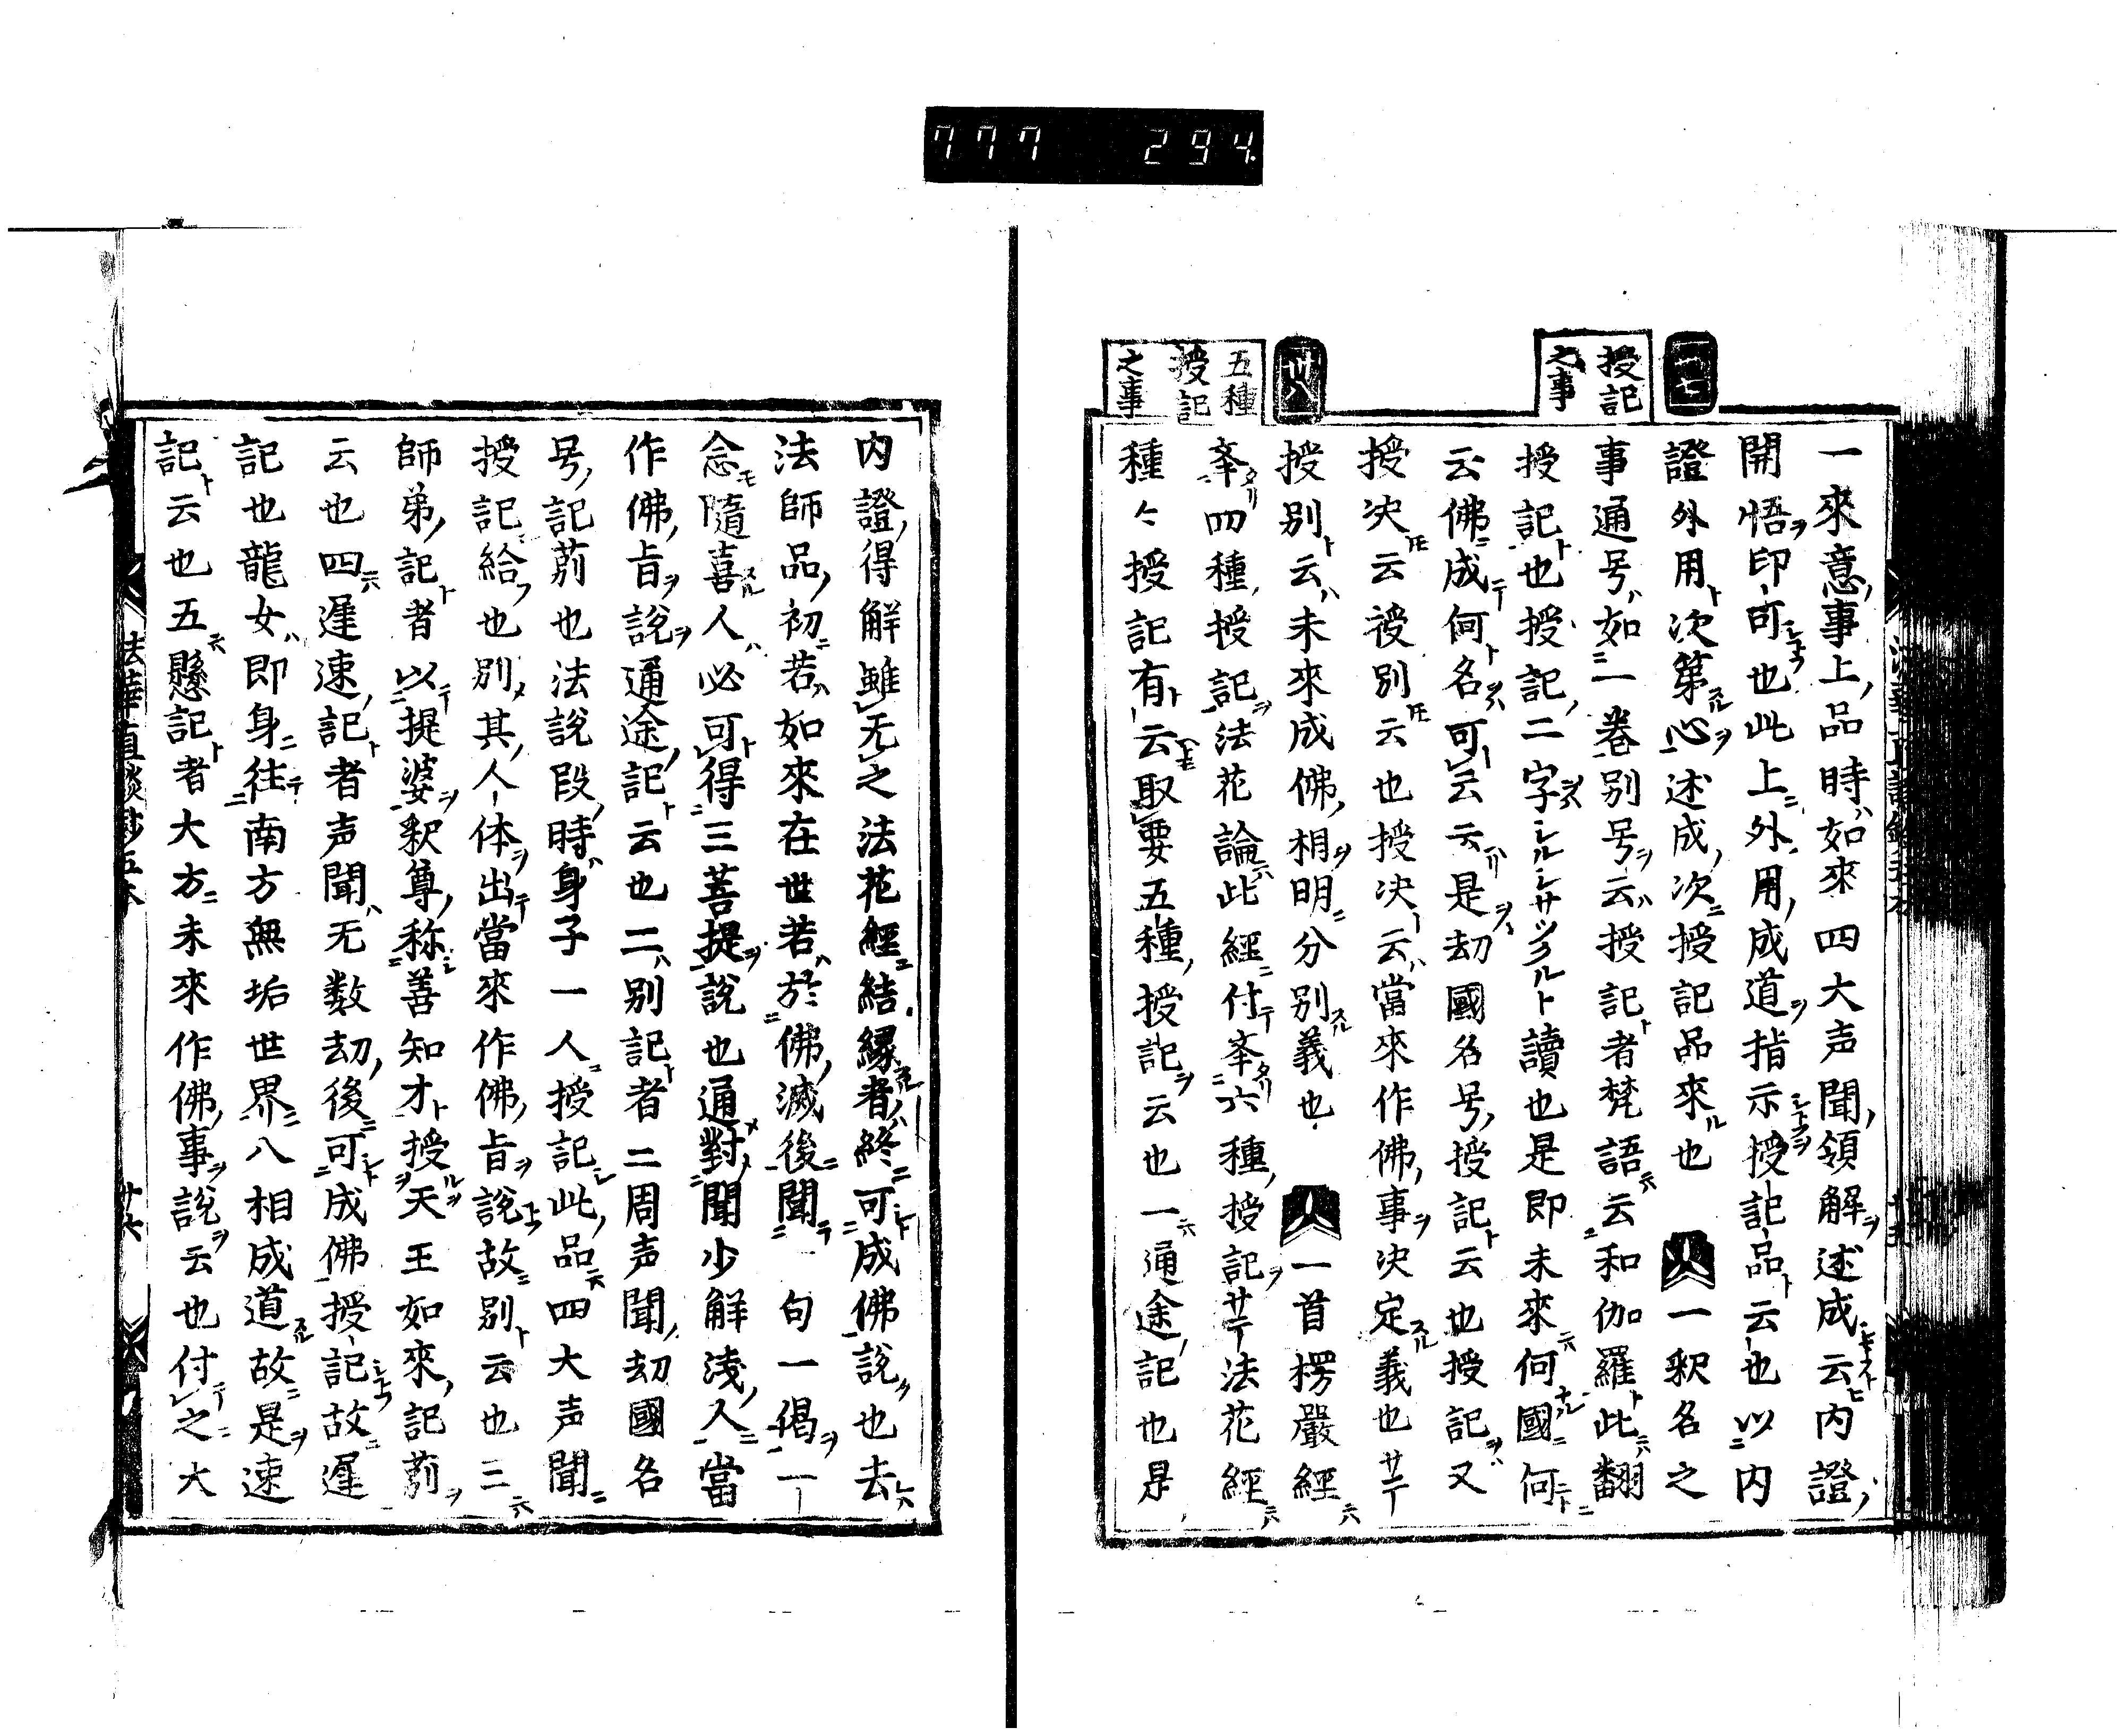 777 294
授記
之事
五種
授記
之事
一來意事上品時如來四大声聞領解述成云内證
開悟印可也此上外用成道指示授記品云也以内
證外用次第心述成次授記品來也 一釈名之
事通号如一卷别号云授記者梵語云和伽羅此翻
授記也授記二字シルシサツクルト讀也是即未來何國何
云佛成何名可云云是刧國名号授記云也授記又
授决云授别云也授决云當來作佛事决定義也サテ
授别云未來成佛相明分别義也 一首楞嚴經
夅四種授記法花論此經付夅六種授記サテ法花經
種々授記有云取要五種授記云也一通途記也是
内證得解雖无之法花經結縁者終可成佛說也去
法師品初若如來在世若於佛滅後聞一句一偈一
念隨喜人必可得三菩提說也通對聞少解淺人當
作佛旨說通途記云也二别記者二周声聞刧國名
号記莂也法說段時身子一人授記此品四大声聞
授記給也别其人体出當來作佛旨說故别云也三
師弟記者以提婆釈尊称善知才授天王如來記莂
云也四遲速記者声聞无数刧後可成佛授記故遲
記也龍女即身往南方無垢世界八相成道故是速
記云也五懸記者大方未來作佛事說云也付之大
法華直談鈔五本
廿六